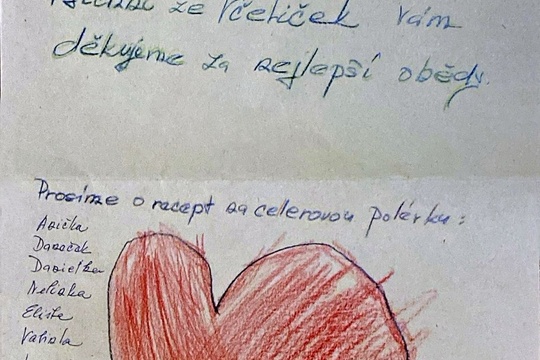 ze Včeliček vám
děkujeme za nejlepší obědy.
Prosíme o recept na celerovou polévku:
Anička
Daneček
Danielka
Nelinka
Eliška